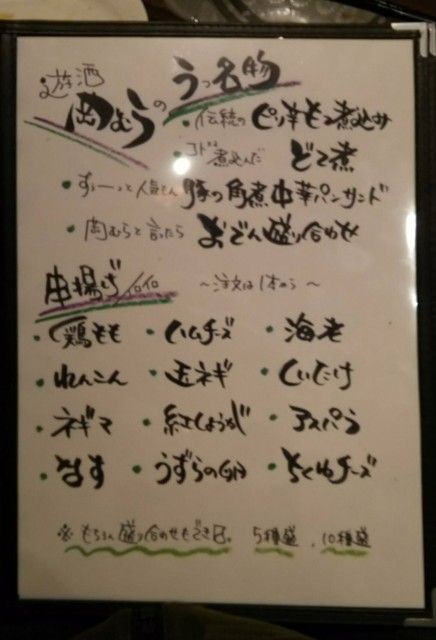 遊酒
岡むらの
うっ名物
・伝統の ピリ辛もつ煮込み
・コトコト煮込んだ どて煮
・ずぃーっと人気もん 豚の角煮中華パンサンド
・岡むらと言ったら おでん盛り合わせ
串揚げ/160 〜注文は1本から〜
・鶏もも ・ハムチーズ ・海老
・れんこん ・玉ネギ ・しいたけ
・ネギマ ・紅しょうが ・アスパラ
・なす ・うずらの卵 ・ちくわチーズ
※もちろん盛り合わせもでき〼。 5種盛、10種盛